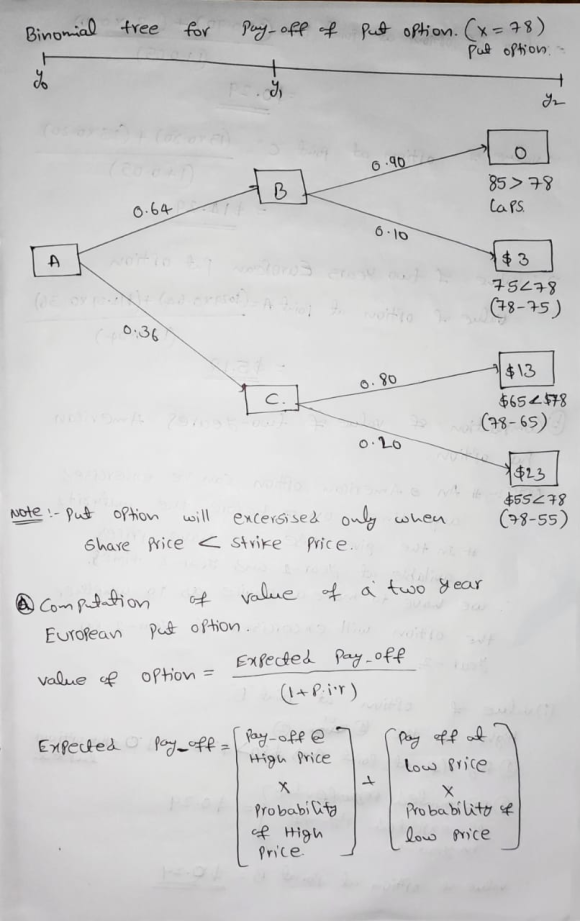 Binomial tree for Pay-off of Put option. (x = 78)
Put option.
y0 y1 y2
0.90
0
B
85 > 78
Laps.
0.64
0.10
A
$3
75 < 78
(78-75)
0.36
$13
0.80
C.
$65 < $78
(78-65)
0.20
$23
$55 < 78
(78-55)
Note :- Put option will excersised only when
Share Price < Strike Price.
(A) Computation of value of a two year
European Put option.
value of option = Expected Pay-off
(1+P.i.r)
Expected Pay-off = [Pay-off @ High Price X Probability of High Price.] + [Pay off at low price X Probability of low price]